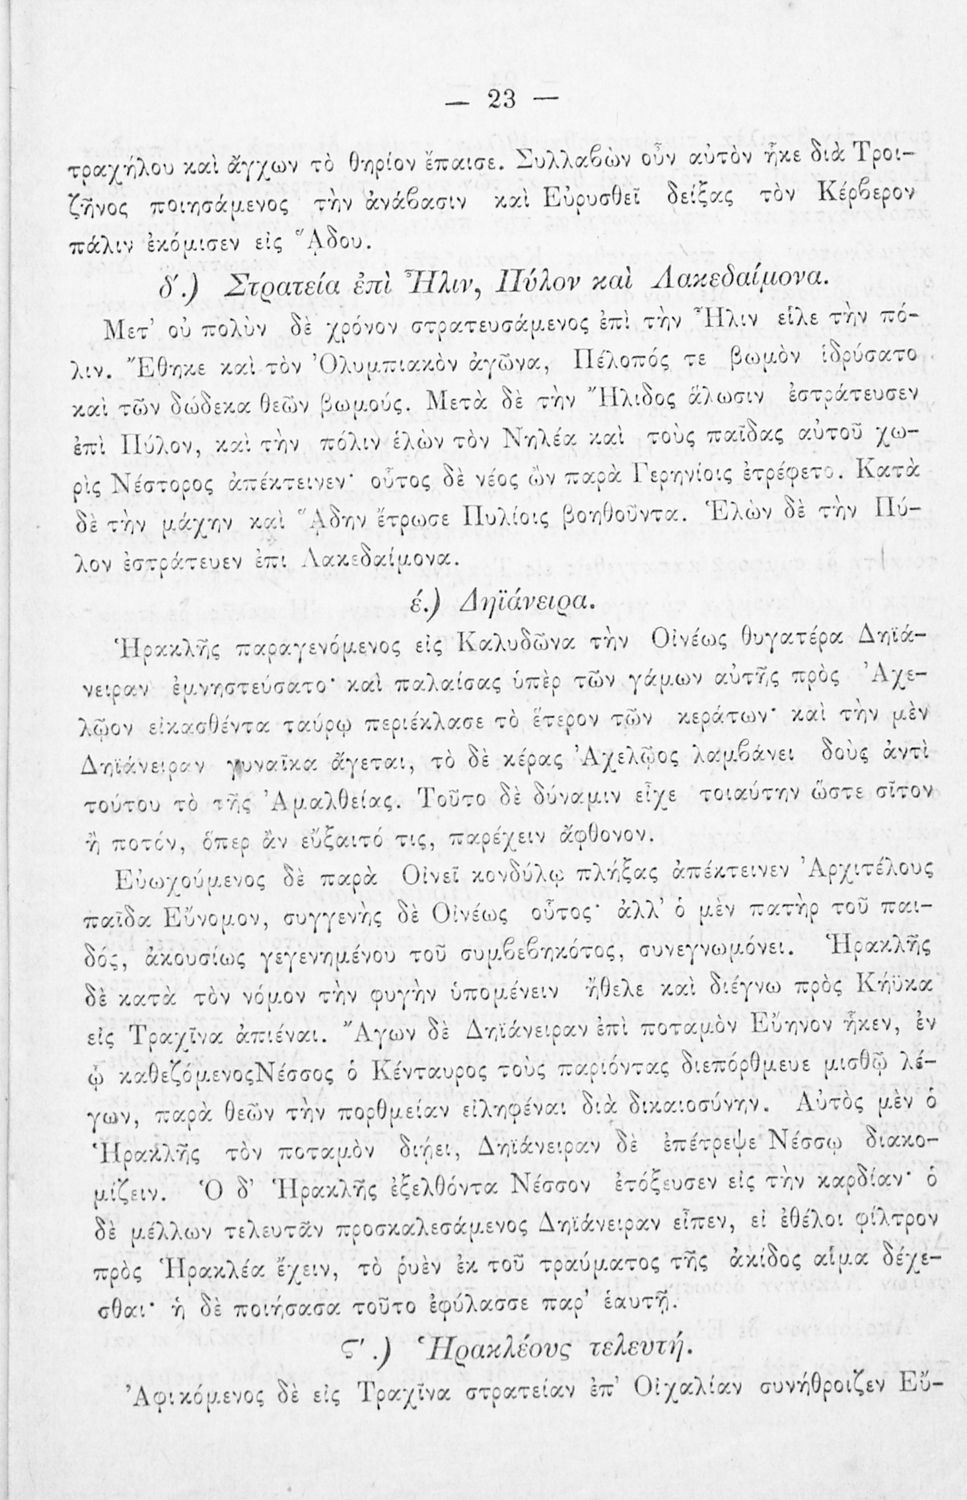 — 23 —
τραχήλου καὶ ἄγχων τὸ θηρίον ἔπαισε. Συλλαβὼν οὖν αὐτὸν ἧκε διὰ Τροι-
ζῆνος ποιησάμενος τὴν ἀνάβασιν καὶ Εὐρυσθεῖ δείξας τὸν Κέρβερον
πάλιν ἐκόμισεν εἰς Ἅδου.
δ'.) Στρατεία ἐπὶ Ἦλιν, Πύλον καὶ Λακεδαίμονα.
Μετ' οὐ πολὺν δὲ χρόνον στρατευσάμενος ἐπὶ τὴν Ἦλιν εἷλε τὴν πό-
λιν. Ἔθηκε καὶ τὸν Ὀλυμπιακὸν ἀγῶνα, Πέλοπός τε βωμὸν ἱδρύσατο
καὶ τῶν δώδεκα θεῶν βωμούς. Μετὰ δὲ τὴν Ἤλιδος ἅλωσιν ἐστράτευσεν
ἐπὶ Πύλον, καὶ τὴν πόλιν ἑλὼν τὸν Νηλέα καὶ τοὺς παῖδας αὐτοῦ χω-
ρὶς Νέστορος ἀπέκτεινεν· οὗτος δὲ νέος ὢν παρὰ Γερηνίοις ἐτρέφετο. Κατὰ
δὲ τὴν μάχην καὶ Ἅδην ἔτρωσε Πυλίοις βοηθοῦντα. Ἑλὼν δὲ τὴν Πύ-
λον ἐστράτευεν ἐπὶ Λακεδαίμονα.
έ.) Δηϊάνειρα.
Ἡρακλῆς παραγενόμενος εἰς Καλυδῶνα τὴν Οἰνέως θυγατέρα Δηϊά-
νειραν ἐμνηστεύσατο· καὶ παλαίσας ὑπὲρ τῶν γάμων αὐτῆς πρὸς Ἀχε-
λῷον εἰκασθέντα ταύρῳ περιέκλασε τὸ ἕτερον τῶν κεράτων· καὶ τὴν μὲν
Δηϊάνειραν γυναῖκα ἄγεται, τὸ δὲ κέρας Ἀχελῷος λαμβάνει δοὺς ἀντὶ
τούτου τὸ τῆς Ἀμαλθείας. Τοῦτο δὲ δύναμιν εἶχε τοιαύτην ὥστε σῖτον
ἢ ποτόν, ὅπερ ἂν εὔξαιτό τις, παρέχειν ἄφθονον.
Εὐωχούμενος δὲ παρὰ Οἰνεῖ κονδύλῳ πλήξας ἀπέκτεινεν Ἀρχιτέλους
παῖδα Εὔνομον, συγγενὴς δὲ Οἰνέως οὗτος· ἀλλ' ὁ μὲν πατὴρ τοῦ παι-
δός, ἀκουσίως γεγενημένου τοῦ συμβεβηκότος, συνεγνωμόνει. Ἡρακλῆς
δὲ κατὰ τὸν νόμον τὴν φυγὴν ὑπομένειν ἤθελε καὶ διέγνω πρὸς Κήϋκα
εἰς Τραχῖνα ἀπιέναι. Ἄγων δὲ Δηϊάνειραν ἐπὶ ποταμὸν Εὔηνον ἧκεν, ἐν
ᾧ καθεζόμενοςΝέσσος ὁ Κένταυρος τοὺς παριόντας διεπόρθμευε μισθῷ λέ-
γων, παρὰ θεῶν τὴν πορθμείαν εἰληφέναι διὰ δικαιοσύνην. Αὐτὸς μὲν ὁ
Ἡρακλῆς τὸν ποταμὸν διῄει, Δηϊάνειραν δὲ ἐπέτρεψε Νέσσῳ διακο-
μίζειν. Ὁ δ' Ἡρακλῆς ἐξελθόντα Νέσσον ἐτόξευσεν εἰς τὴν καρδίαν· ὁ
δὲ μέλλων τελευτᾶν προσκαλεσάμενος Δηϊάνειραν εἶπεν, εἰ ἐθέλοι φίλτρον
πρὸς Ἡρακλέα ἔχειν, τὸ ῥυὲν ἐκ τοῦ τραύματος τῆς ἀκίδος αἷμα δέχε-
σθαι· ἡ δὲ ποιήσασα τοῦτο ἐφύλασσε παρ' ἑαυτῇ.
ς'.) Ἡρακλέους τελευτή.
Ἀφικόμενος δὲ εἰς Τραχῖνα στρατείαν ἐπ' Οἰχαλίαν συνήθροιζεν Εὔ-